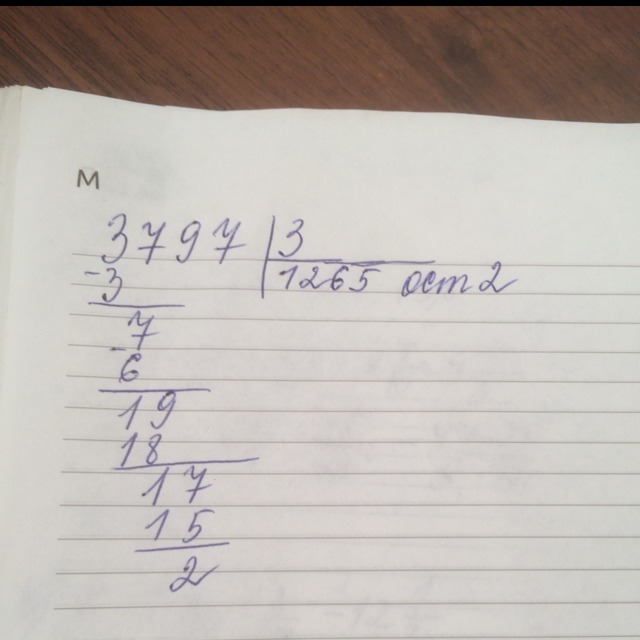 М
3797 3
-3 1265 ост 2
7
-6
19
18
17
15
2